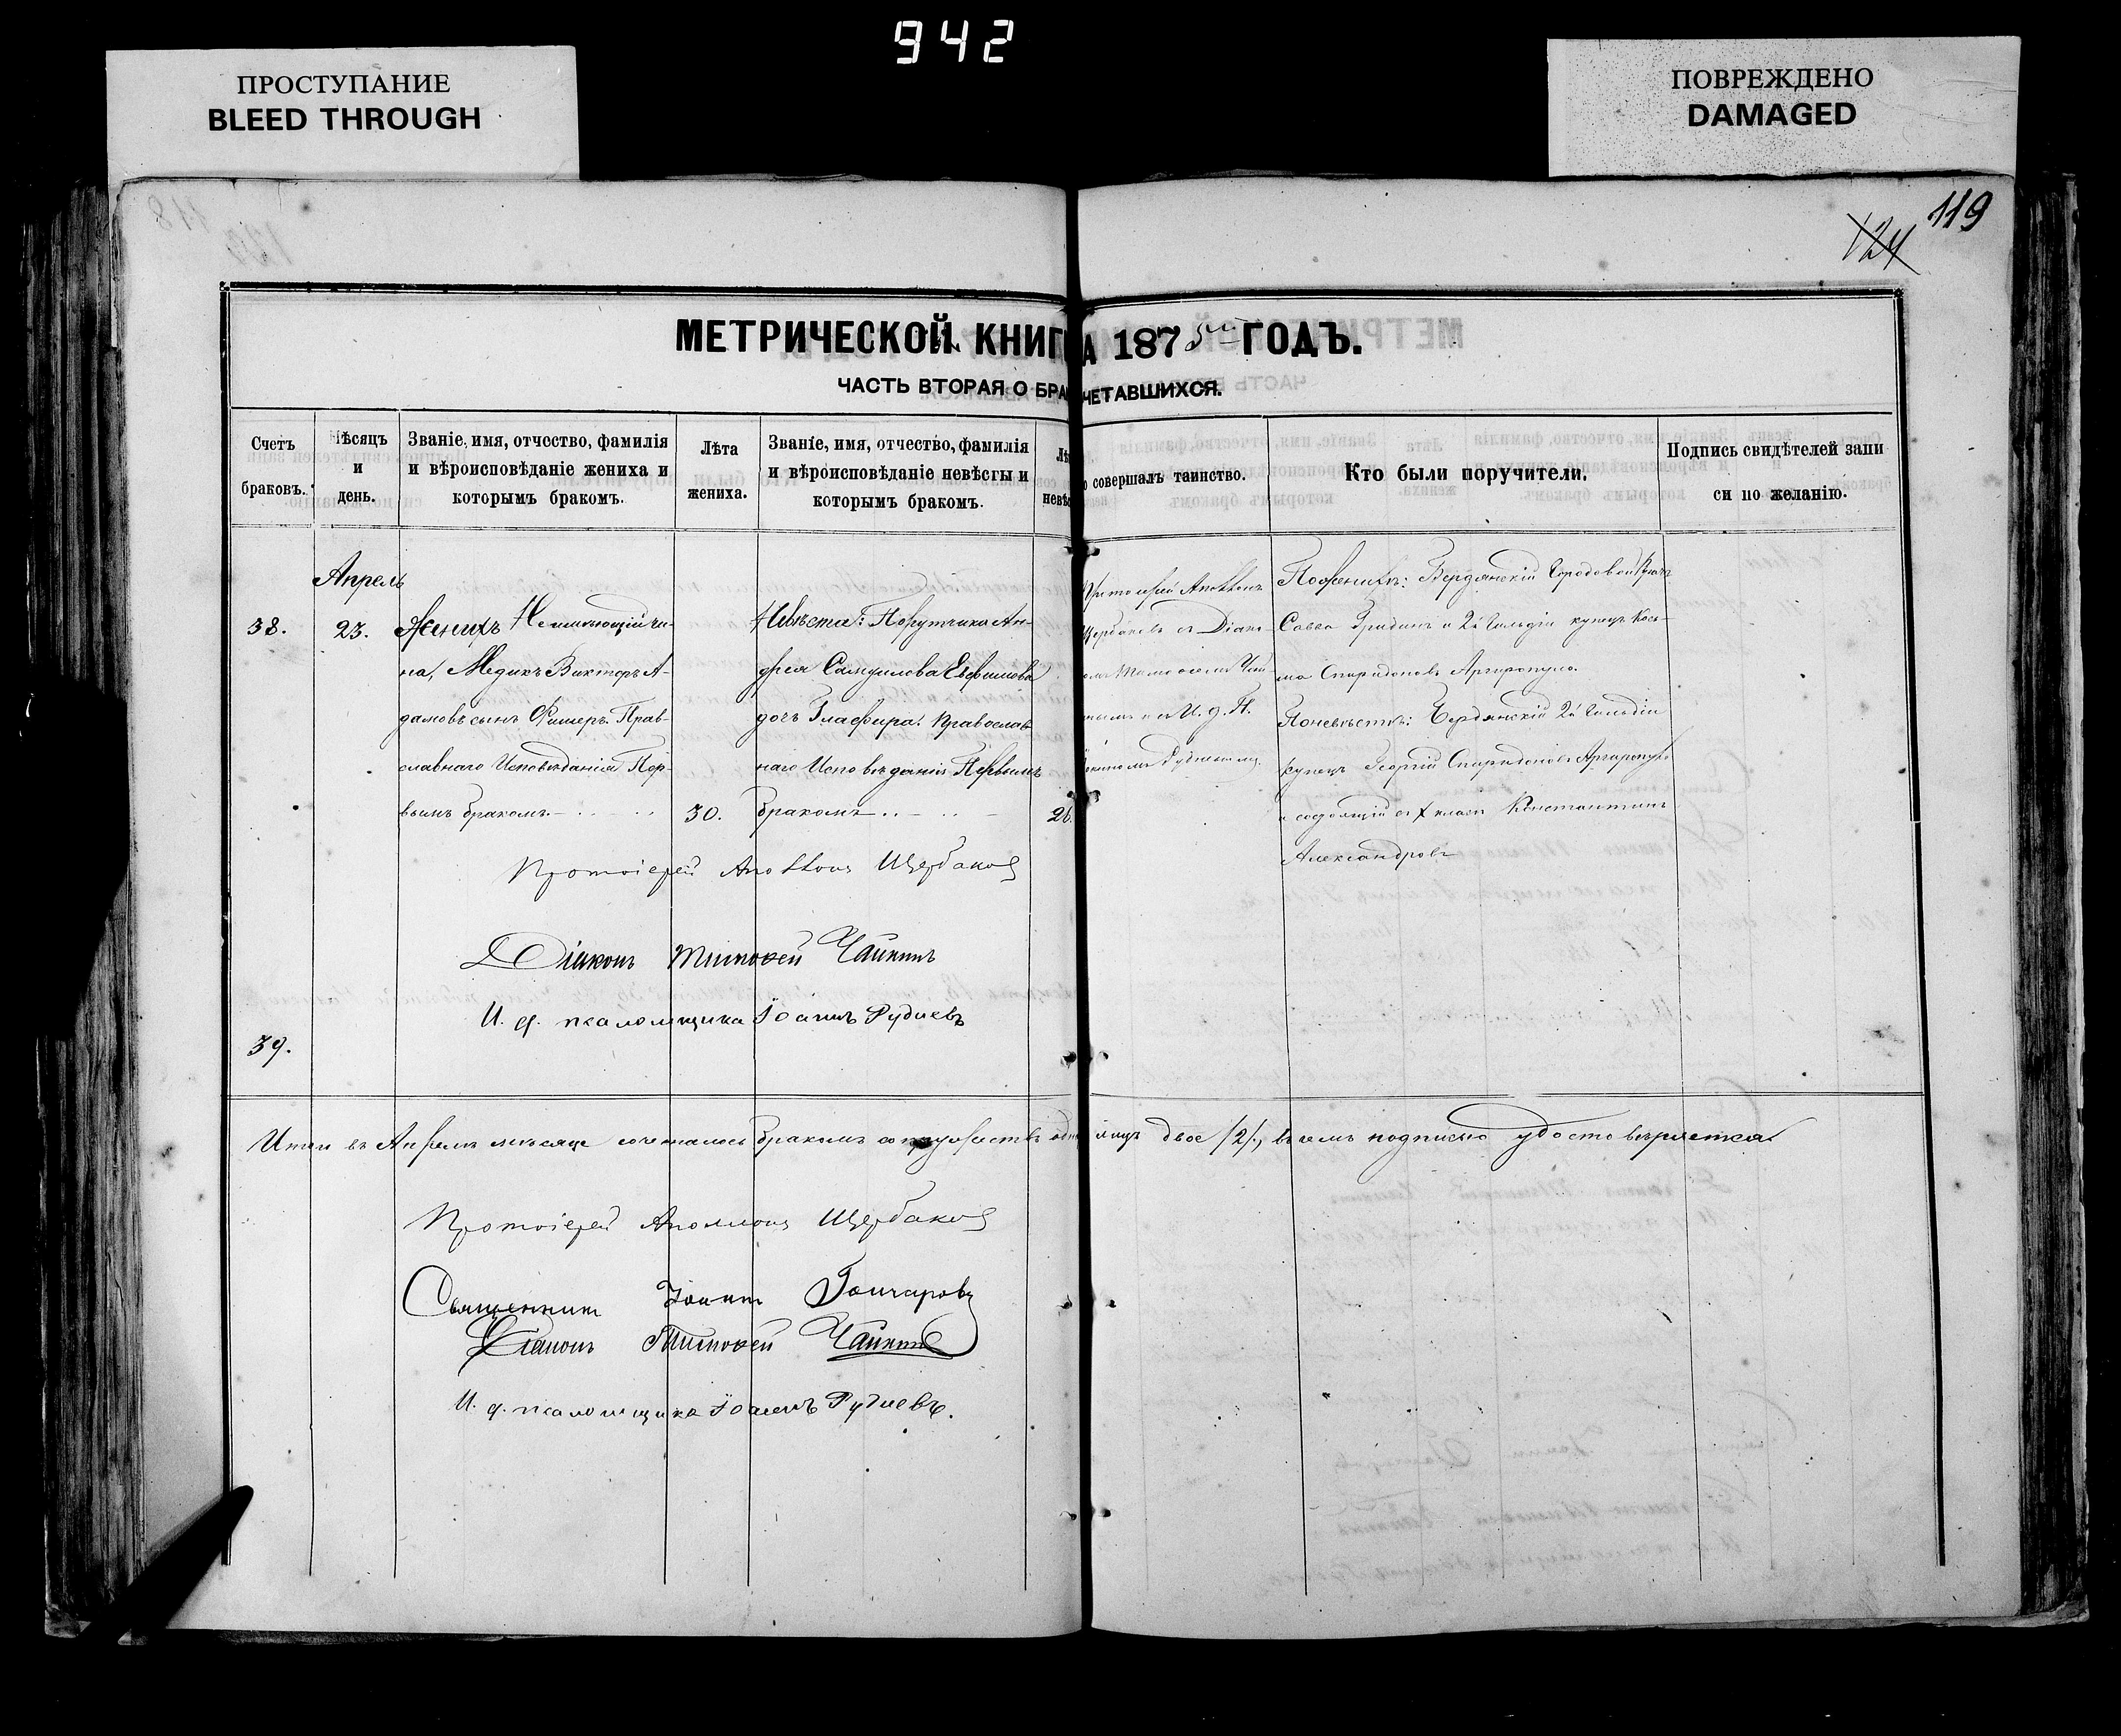 942
ПРОСТУПАНИЕ
BLEED THROUGH
ПОВРЕЖДЕНО
DAMAGED
119
124
МЕТРИЧЕСКОЙ КНИГ
А 1875 ГОДЪ.
ЧАСТЬ ВТОРАЯ О БРА
ЧЕТАВШИХСЯ.
Счетъ
браковъ.
Мѣсяцъ
и
день.
Званіе, имя, отчество, фамилія
и вѣроисповѣданіе жениха и
которымъ бракомъ.
Лѣта
жениха.
Званіе, имя, отчество, фамилія
и вѣроисповѣданіе невѣсты и
которымъ бракомъ.
Лѣ
невѣс
о совершалъ таинство.
Кто были поручители.
Подпись свидѣтелей запи
си по желанію.
38.
Апрель
23.
Женихъ Неимѣющій чи-
на, Медикъ Викторъ А-
дамовъ сынъ Фишеръ. Прав-
славнаго Исповѣданія Пер-
вымъ бракомъ.
30.
Невѣста: Поручика Ан-
дрея Самуилова Ефимова
дочъ Глафира. Православ-
наго Исповѣданія Первымъ
бракомъ
26.
Протоіерей Аполлонъ
Щербаковъ съ Діако-
номъ Тимофеемъ Чай-
и И. д. П.
Іоанномъ Рудневымъ.
По женихѣ: Бердянскій Городовой Врачъ
Савва Гридинъ и 2й Гильдіи купецъ Кось-
ма Спиридоновъ Аргиропуло.
По невѣстѣ: Бердянскій 2й Гильдіи
Купецъ Георгій Спиридоновъ Аргиропуло
и состоящій въ X класѣ Константинъ
Александровъ
Протоіерей Аполлонъ Щербаковъ
Діаконъ Тимофей Чайкинъ
И. д. псаломщика Іоаннъ Рудневъ
39.
Итого въ Апрелѣ месяце сочеталось бракомъ двое /2/, въ чемъ подписью удостовѣряется.
Протоіерей Аполлонъ Щербаковъ
Священникъ Іоаннъ Гончаровъ
Діаконъ Тимофей Чайкинъ
И. д. псаломщика Іоаннъ Рудневъ.